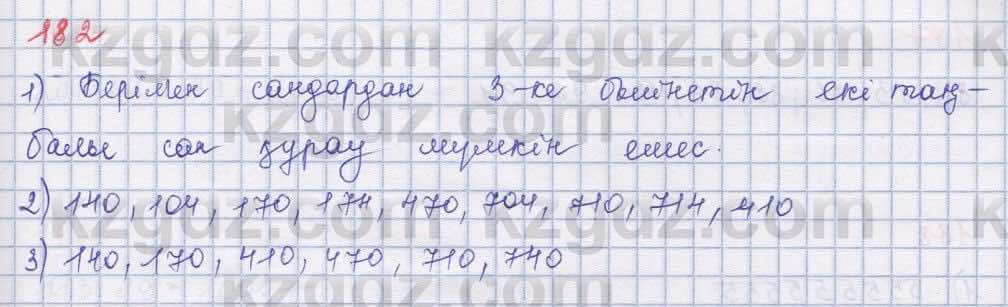 182
1) Берілген сандардан 3-ке бөлінетін екі таң-
балы сан құрау мүмкін емес.
2) 140, 104, 170, 174, 470, 704, 710, 714, 410
3) 140, 170, 410, 470, 710, 740
kzgdz.com